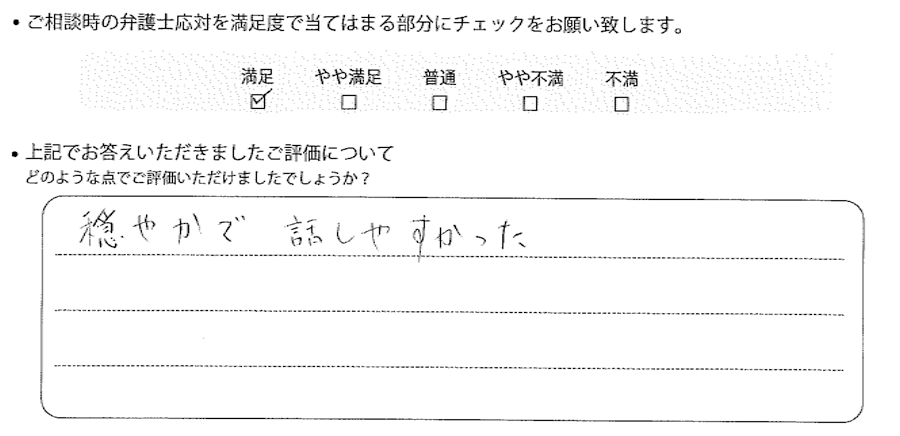 • ご相談時の弁護士応対を満足度で当てはまる部分にチェックをお願い致します。
満足 やや満足 普通 やや不満 不満
☑ ☐ ☐ ☐ ☐
• 上記でお答えいただきましたご評価について
どのような点でご評価いただけましたでしょうか？
穏やかで 話しやすかった